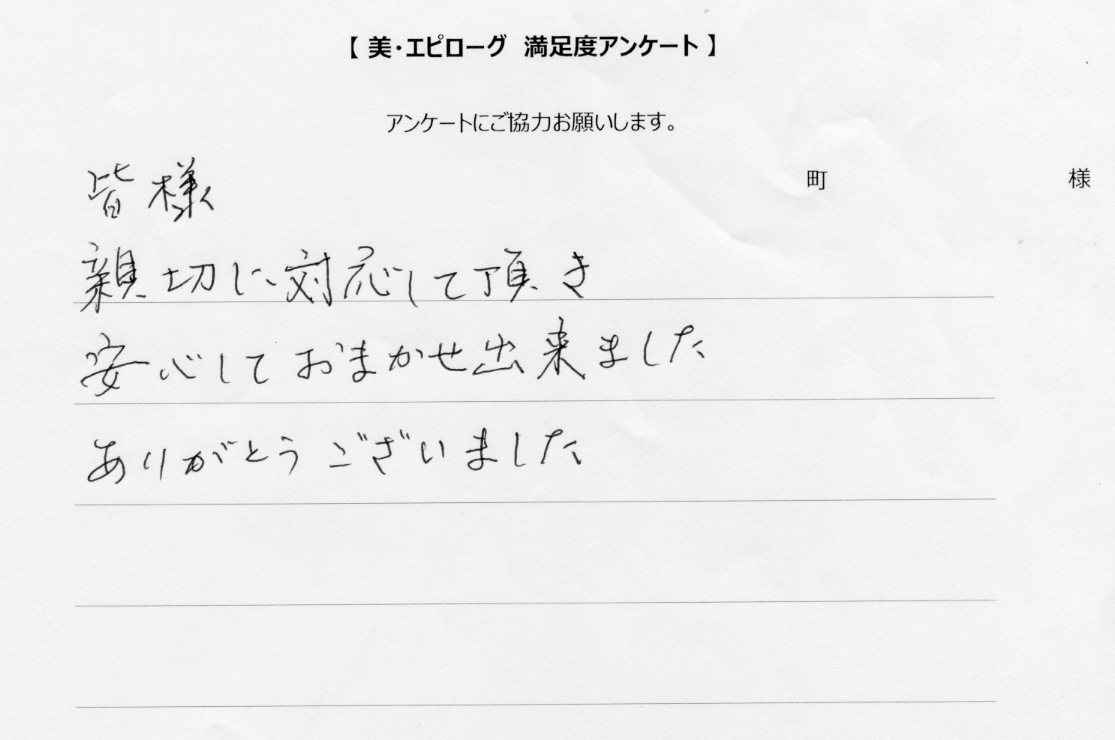 【 美・エピローグ 満足度アンケート 】
アンケートにご協力お願いします。
町 様
皆様
親切に対応して頂き
安心しておまかせ出来ました
ありがとうございました